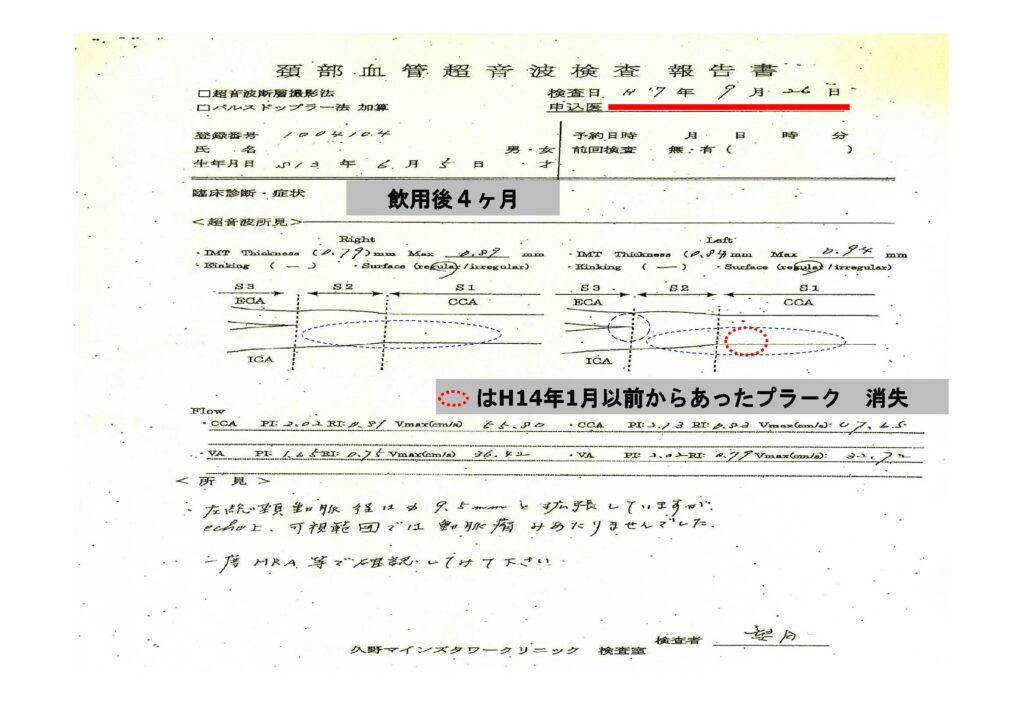 頚部血管超音波検査 報告書
□超音波断層撮影法
□パルスドップラー法 加算
検査日 H17年 9月 26日
申込医
登録番号 1004104
氏 名 男・女
生年月日 S13 年 6月 5日 才
予約日時 月 日 時 分
前回検査 無・有 ( )
臨床診断・症状
飲用後4ヶ月
<超音波所見>
Right
・IMT Thickness (0.79)mm Max 0.89 mm
・Kinking (—) ・Surface (regular/irregular)
Left
・IMT Thickness (0.84)mm Max 0.94 mm
・Kinking (—) ・Surface (regular/irregular)
S3 S2 S1
ECA CCA
ICA
S3 S2 S1
ECA CCA
ICA
はH14年1月以前からあったプラーク 消失
Flow
・CCA PI: 2.02 RI: 0.81 Vmax(cm/s) 65.80 ・CCA PI: 2.13 RI: 0.82 Vmax(cm/s):
・VA PI: 1.65 RI: 0.75 Vmax(cm/s) 36.42 ・VA PI: 2.02 RI: 0.79 Vmax(cm/s): 32.72
< 所 見 >
左総頸動脈径はφ9.5mmと拡張していますが、
echo上、可視範囲では動脈瘤みあたりませんでした.
一度 MRA 等で確認してみて下さい.
検査者 望月
久野マインズタワークリニック 検査室